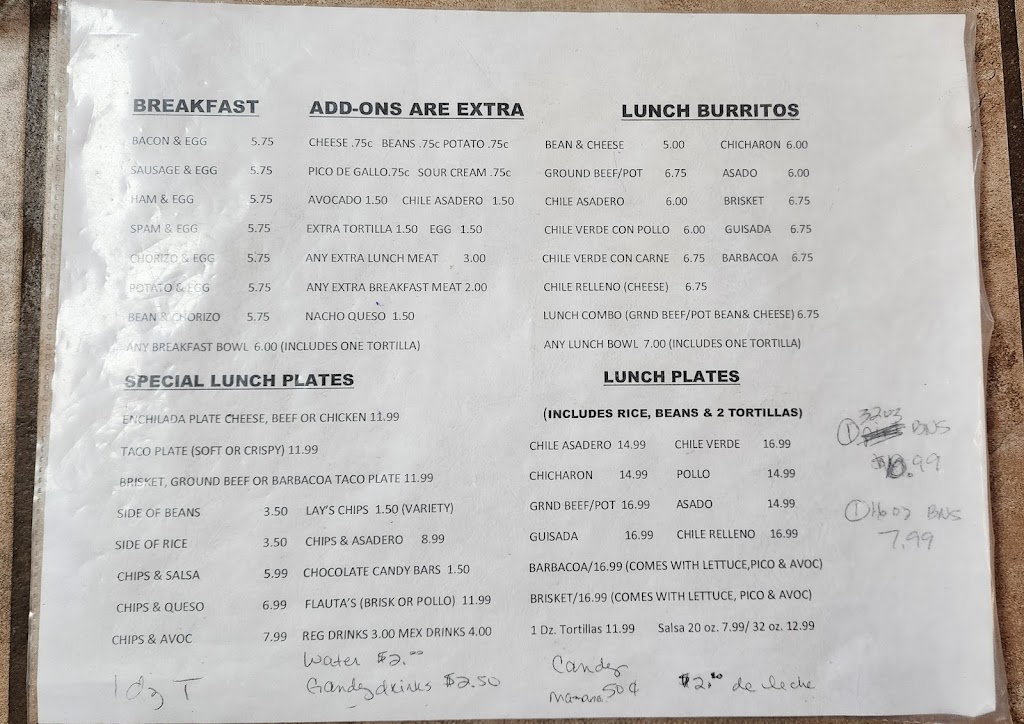 BREAKFAST
BACON & EGG 5.75
SAUSAGE & EGG 5.75
HAM & EGG 5.75
SPAM & EGG 5.75
CHORIZO & EGG 5.75
POTATO & EGG 5.75
BEAN & CHORIZO 5.75
ANY BREAKFAST BOWL 6.00 (INCLUDES ONE TORTILLA)
ADD-ONS ARE EXTRA
CHEESE .75c BEANS .75c POTATO .75c
PICO DE GALLO.75c SOUR CREAM .75c
AVOCADO 1.50 CHILE ASADERO 1.50
EXTRA TORTILLA 1.50 EGG 1.50
ANY EXTRA LUNCH MEAT 3.00
ANY EXTRA BREAKFAST MEAT 2.00
NACHO QUESO 1.50
LUNCH BURRITOS
BEAN & CHEESE 5.00 CHICHARON 6.00
GROUND BEEF/POT 6.75 ASADO 6.00
CHILE ASADERO 6.00 BRISKET 6.75
CHILE VERDE CON POLLO 6.00 GUISADA 6.75
CHILE VERDE CON CARNE 6.75 BARBACOA 6.75
CHILE RELLENO (CHEESE) 6.75
LUNCH COMBO (GRND BEEF/POT BEAN& CHEESE) 6.75
ANY LUNCH BOWL 7.00 (INCLUDES ONE TORTILLA)
SPECIAL LUNCH PLATES
ENCHILADA PLATE CHEESE, BEEF OR CHICKEN 11.99
TACO PLATE (SOFT OR CRISPY) 11.99
BRISKET, GROUND BEEF OR BARBACOA TACO PLATE 11.99
SIDE OF BEANS 3.50 LAY'S CHIPS 1.50 (VARIETY)
SIDE OF RICE 3.50 CHIPS & ASADERO 8.99
CHIPS & SALSA 5.99 CHOCOLATE CANDY BARS 1.50
CHIPS & QUESO 6.99 FLAUTA'S (BRISK OR POLLO) 11.99
CHIPS & AVOC 7.99 REG DRINKS 3.00 MEX DRINKS 4.00
Water $2.00
1 dz T Gandy drinks $2.50
LUNCH PLATES
(INCLUDES RICE, BEANS & 2 TORTILLAS)
CHILE ASADERO 14.99 CHILE VERDE 16.99
CHICHARON 14.99 POLLO 14.99
GRND BEEF/POT 16.99 ASADO 14.99
GUISADA 16.99 CHILE RELLENO 16.99
BARBACOA/16.99 (COMES WITH LETTUCE,PICO & AVOC)
BRISKET/16.99 (COMES WITH LETTUCE, PICO & AVOC)
1 Dz. Tortillas 11.99 Salsa 20 oz. 7.99/ 32 oz. 12.99
Candy
50¢ $2.00 de leche
32oz
1 BNS
.99
1 16 oz BNS
7.99